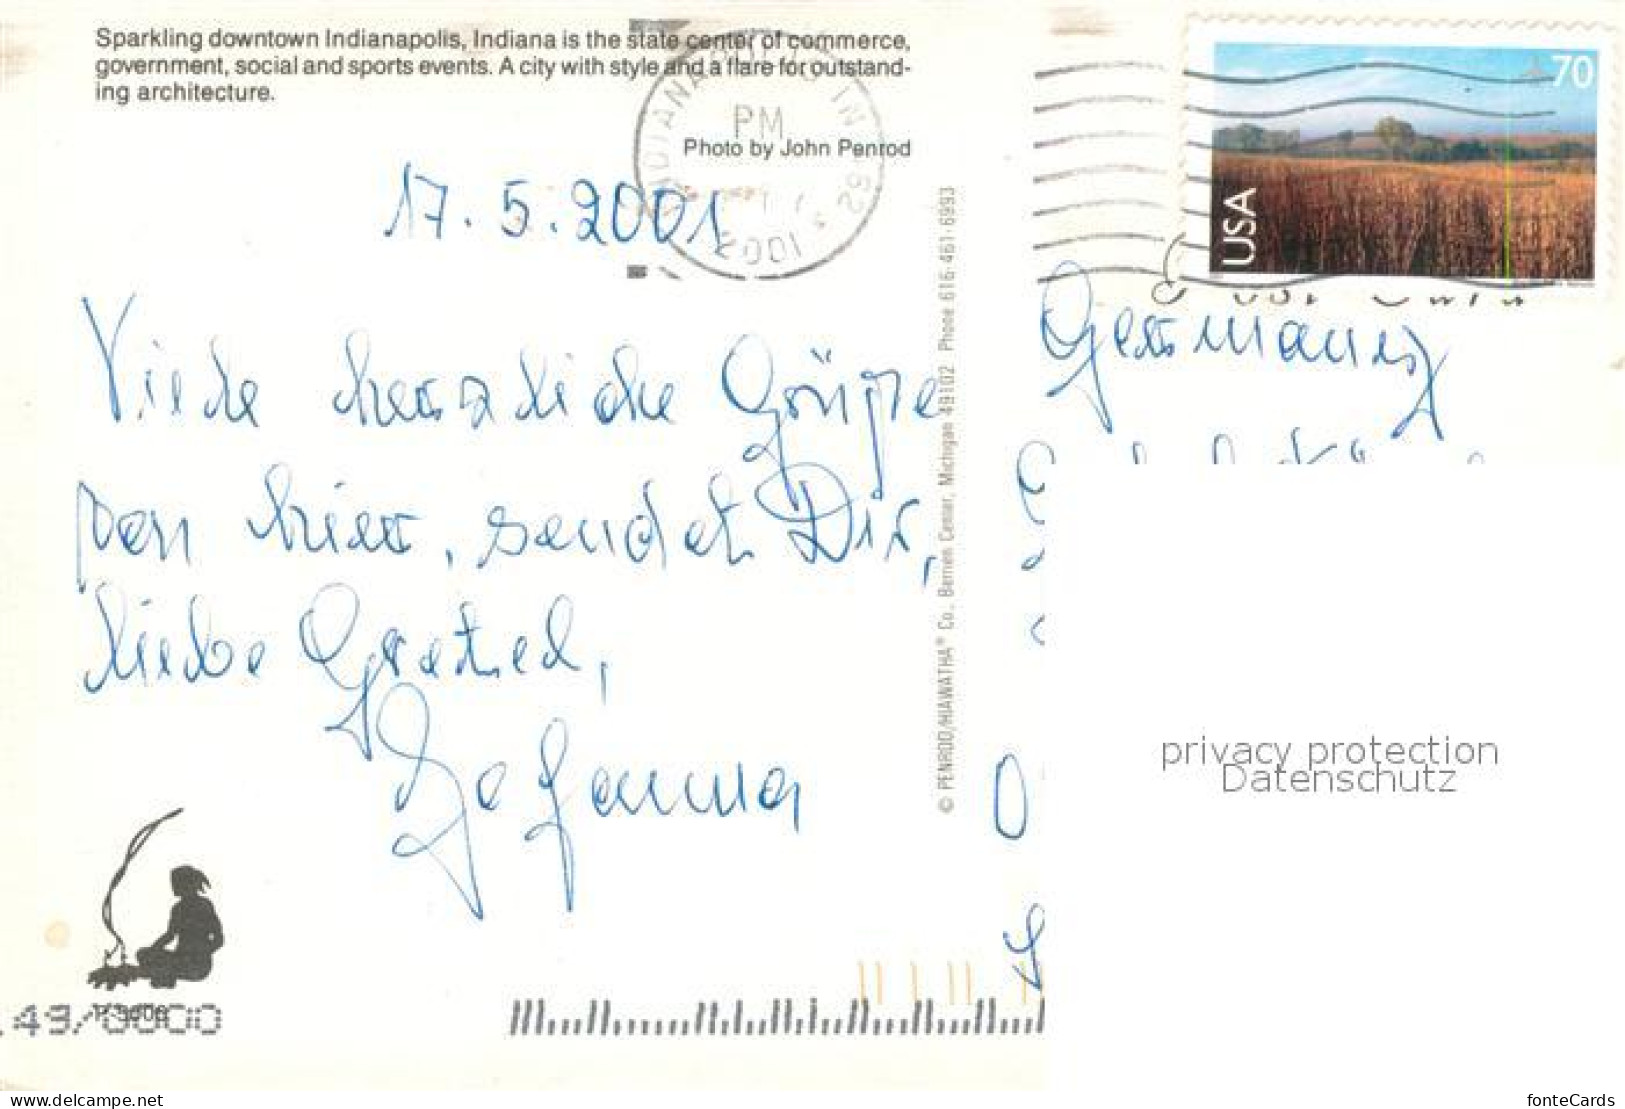 Sparkling downtown Indianapolis, Indiana is the state center of commerce,
government, social and sports events. A city with style and a flare for outstand-
ing architecture.
Photo by John Penrod
PM
2001
17.5.2001
Viele herzliche Grüße
von hier, sendet Dir,
liebe Gretel,
© PENROD/HIAWATHA® Co., Berrien Center, Michigan 49102 Phone 616-461-6993
USA
70
Post Card
Germany
privacy protection
Datenschutz
www.delcampe.net
fonteCards